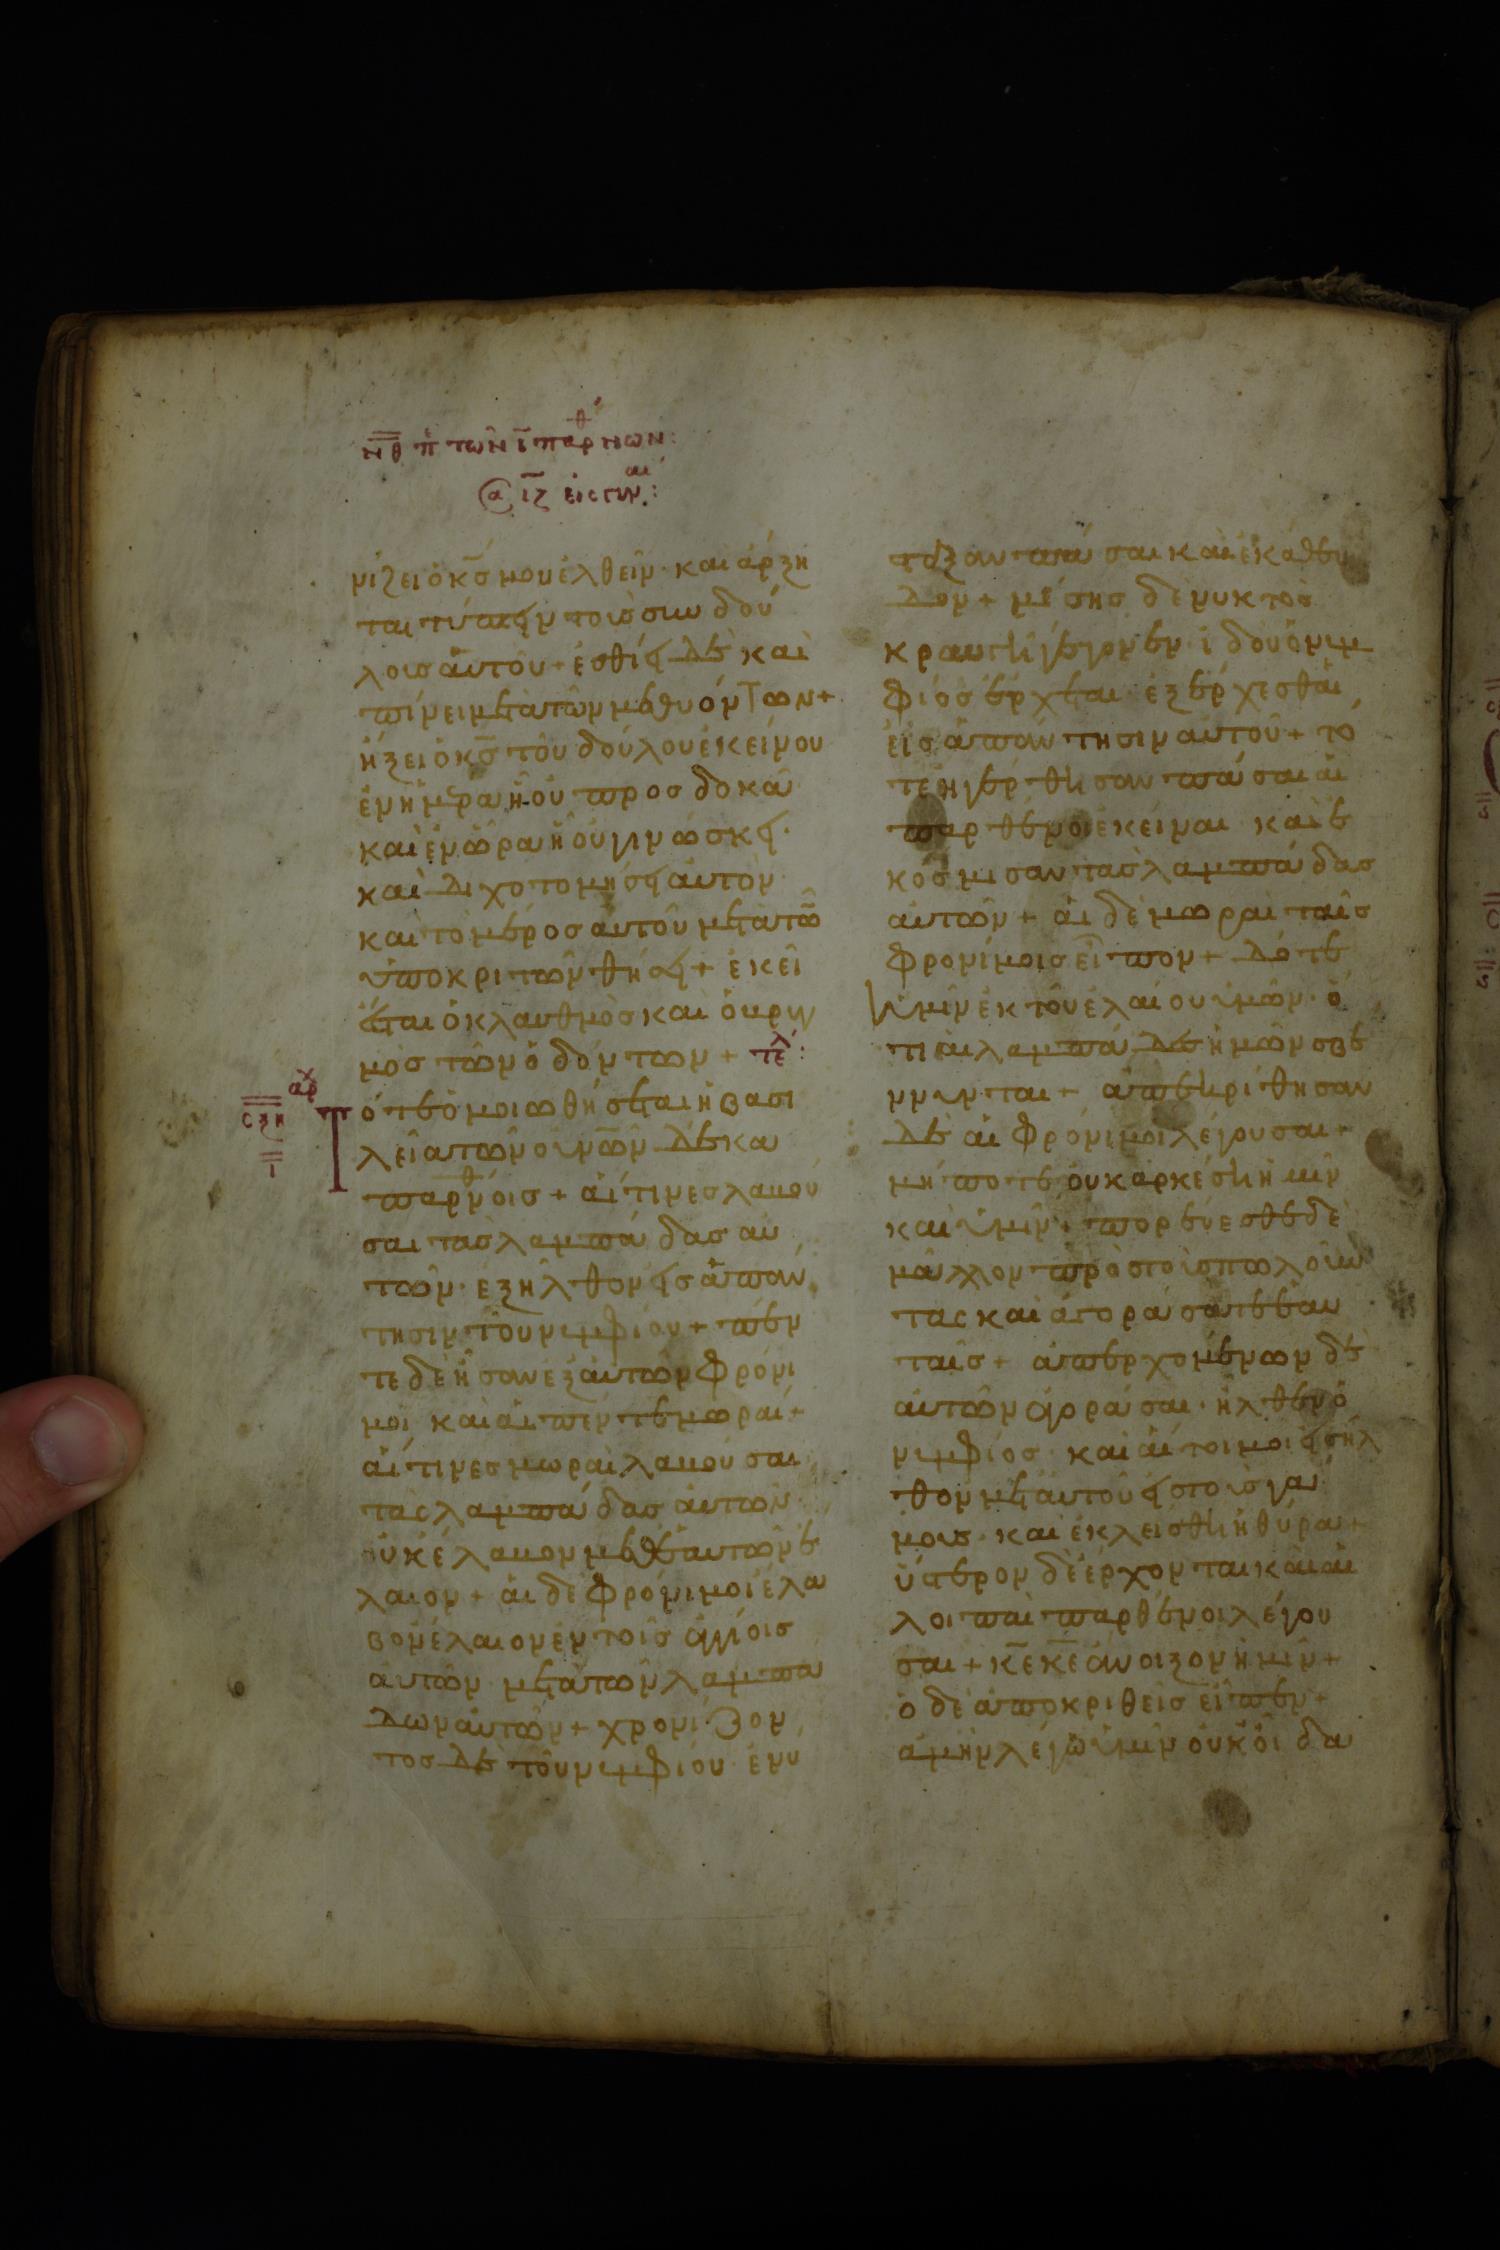 νθ πε των ι παρθνων:
νιζει ὁ κσ μου ἐλθεῖν· και ἄρξη
ται τύπτειν τοὺσ συνδού
λουσ αὐτοῦ + ἐσθίει δὲ καὶ
πίνει μετὰ τῶν μεθυόντων +
ἥξει ὁ κσ τοῦ δούλου ἐκείνου
ἐν ἡμέρα ἧ οὐ προσδοκᾶ
καὶ ἐν ὥρα ἧ οὐ γινώσκει·
καὶ διχοτομήσει αὐτὸν
καὶ τὸ μέροσ αὐτοῦ μετὰ τῶ
ὑποκριτῶν θήσει + ἐκεῖ
ἔσται ὁ κλαυθμὸσ καὶ ὁ βρυγ
μὸσ τῶν ὀδόντων + τελ:
αρχ
σξη
Τότε ὁμοιωθήσεται ἡ βασι
λεία τῶν οὐνῶν δέκα
παρθνοισ + αἵτινεσ λαβοῦ
σαι τὰσ λαμπάδασ αὐ
τῶν· ἐξῆλθον εἰσ ἀπάν
τησιν τοῦ νυμφίου + πέν
τε δὲ ἦσαν ἐξ αὐτῶν φρόνι
μοι καὶ αἱ πέντε μωραί +
αἵτινεσ μωραὶ λαβοῦσαι
τὰσ λαμπάδασ αὐτῶν
οὐκ ἔλαβον μεθ ἑαυτῶν ἔ
λαιον + αἱ δὲ φρόνιμοι ἔλα
βον ἔλαιον ἐν τοῖσ ἀγγίοισ
αὐτῶν μετὰ τῶν λαμπά
δων αὐτῶν + χρονίζον
τοσ δὲ τοῦ νυμφίου ἐνύ
ταξαν πᾶσαι καὶ ἐκάθευ
δον + μέσησ δὲ νυκτὸσ
κραυγὴ γέγονεν· ἰδοὺ ὁ νυμ
φίοσ ἔρχεται ἐξέρχεσθαι
εἰσ ἀπάντησιν αὐτοῦ + τό
τε ἠγέρθησαν πᾶσαι αἱ
παρθένοι ἐκεῖναι καὶ ἐ
κόσμισαν τὰσ λαμπάδασ
αὐτῶν + αἱ δὲ μωραὶ ταῖσ
φρονίμοισ εἶπον + δότε
ἡμῖν ἐκ τοῦ ἐλαίου ὑμῶν· ὅ
τι αἱ λαμπάδεσ ἡμῶν σβέ
ννυνται + ἀπεκρίθησαν
δὲ αἱ φρόνιμοι λέγουσαι +
μήποτε οὐκ ἀρκέση ἡμῖν
καὶ ὑμῖν + πορεύεσθε δὲ
μᾶλλον πρὸσ τοὺσ πωλοῦν
τασ καὶ ἀγοράσατε ἑαυ
ταῖσ + ἀπερχομένων δὲ
αὐτῶν ἀγοράσαι· ἦλθεν ὁ
νυμφίοσ καὶ αἱ ἕτοιμοι εἰσῆλ
θον μετ αὐτοῦ εἰσ τοὺσ γά
μουσ· καὶ ἐκλείσθη ἡ θύρα +
ὕστερον δὲ ἔρχονται καὶ αἱ
λοιπαὶ παρθένοι λέγου
σαι + κε κε ἄνοιξον ἡμῖν +
ὁ δὲ ἀποκριθεὶσ εἶπεν +
ἀμὴν λέγω ὑμῖν οὐκ οἶδα